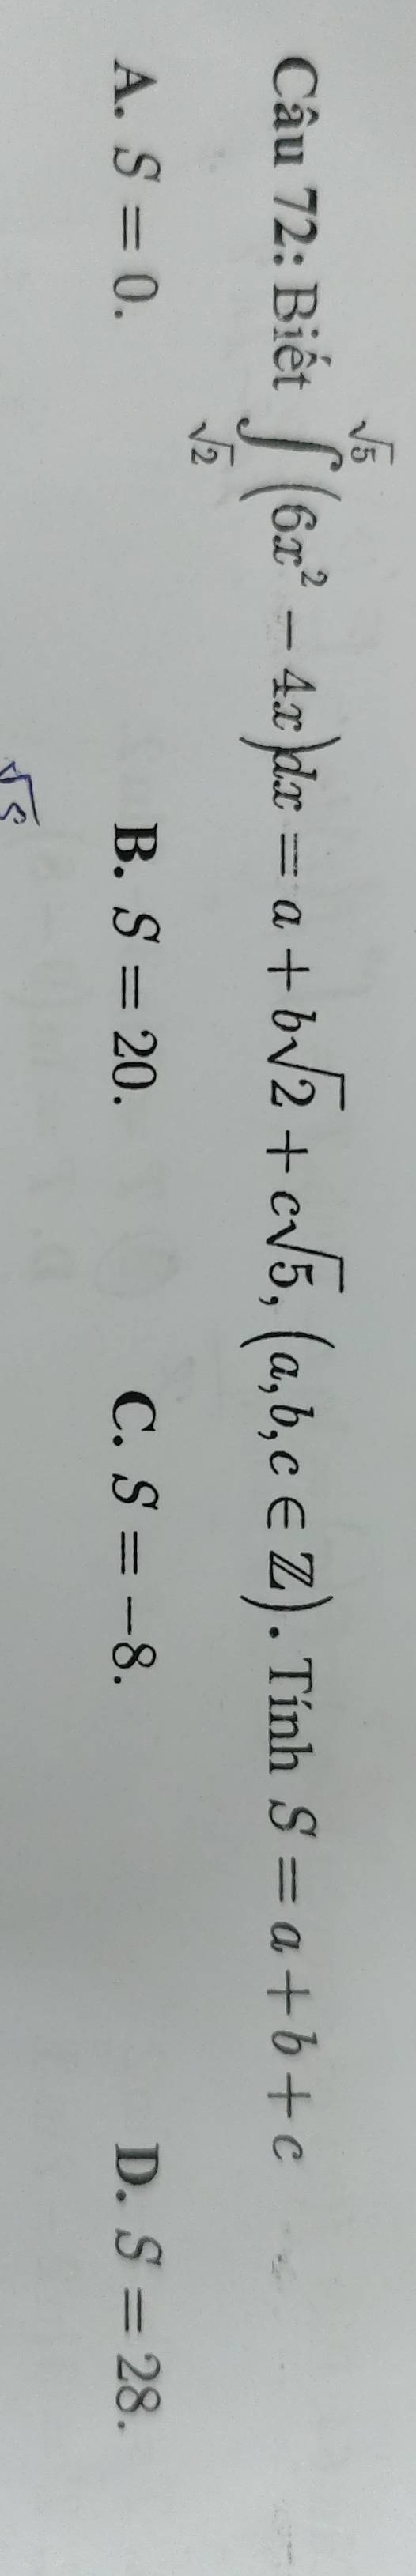 Câu 72: Biết ∫_{√2}^{√5} (6x² − 4x)dx = a + b√2 + c√5, (a, b, c ∈ ℤ). Tính S = a + b + c
A. S = 0. B. S = 20. C. S = −8. D. S = 28.
√5